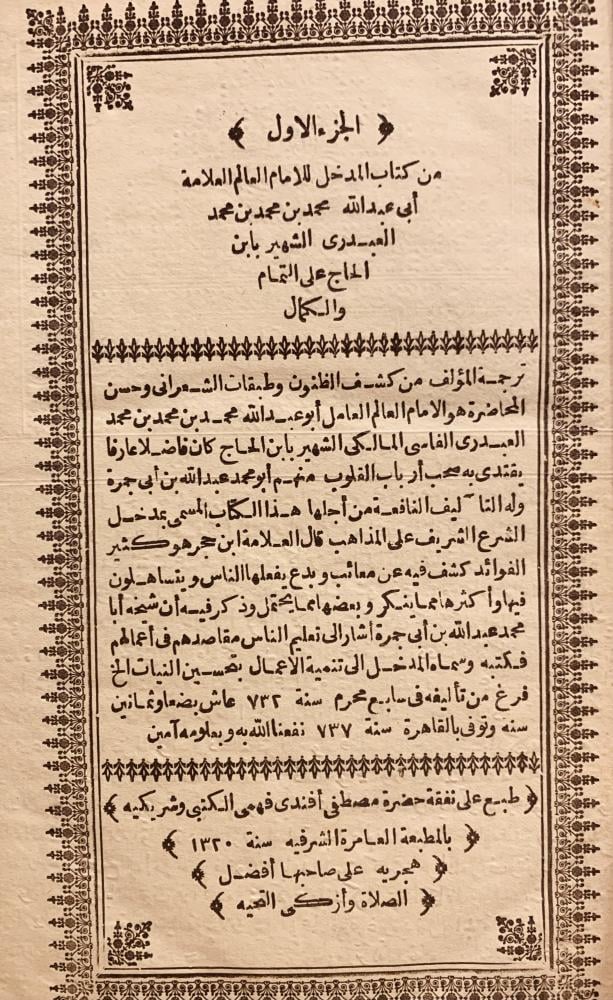 ﴿ الجزء الاول ﴾
من كتاب المدخل للامام العالم العلامة
أبي عبدالله محمد بن محمد بن محمد
العبدرى الشهير بابن
الحاج على التمام
والكمال
ترجمة المؤلف من كشف الظنون وطبقات الشعرانى وحسن
المحاضرة هو الامام العالم العامل أبو عبدالله محمد بن محمد بن محمد
العبدرى الفاسى المالكى الشهير بابن الحاج كان فاضلا عارفا
يقتدى به صحب أرباب القلوب منهم أبو محمد عبدالله بن أبى جمرة
وله التآليف النافعة من أجلها هذا الكتاب المسمى بمدخل
الشرع الشريف على المذاهب قال العلامة ابن حجر هو كثير
الفوائد كشف فيه عن معائب وبدع يفعلها الناس ويتساهلون
فيها وأكثرها مما ينكر وبعضها مما يحتمل وذكر فيه أن شيخه أبا
محمد عبدالله بن أبى جمرة أشار الى تعليم الناس مقاصدهم فى أعمالهم
فكتبه وسماه المدخل الى تنمية الاعمال بتحسين النيات الخ
فرغ من تأليفه فى سابع محرم سنة ٧٣٢ عاش بضعا وثمانين
سنه وتوفى بالقاهرة سنة ٧٣٧ نفعنا الله به وبعلومه آمين
﴿ طبع على نفقة حضرة مصطفى أفندى فهمى الكتبى وشريكيه ﴾
﴿ بالمطبعة العامرة الشرفيه سنة ١٣٢٠ ﴾
﴿ هجريه على صاحبها أفضل ﴾
﴿ الصلاة وأزكى التحيه ﴾